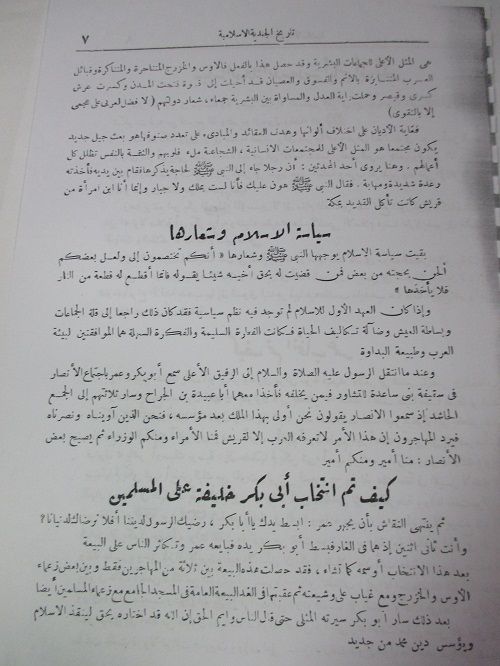 تاريخ الجندية الاسلامية ٧
هى المثل الأعلى للجماعات البشرية وقد حصل هذا بالفعل فالاوس والخزرج المتناحرة والمتناكرة وقبائل
العرب المتسارة بالاثم والفسوق والعصيان قد أحيلت إلى قوة فتحت المدن وكسرت عرش
كسرى وقيصر وحملت راية العدل والمساواة بين البشرية جمعاء، شعار دولتهم (لا فضل لعربى على عجمى
إلا بالتقوى)
فغاية الأديان على اختلاف ألوانها وهدف العقائد والمبادىء على تعدد صنوفها هو بعث جيل جديد
يكون مجتمعا هو المثل الأعلى للمجتمعات الانسانية، الشجاعة ملء قلوبهم والثقة بالنفس تظلل كل
أعمالهم. وهنا يروى أحد المحدثين: أن رجلا جاء إلى النبى ﷺ لحاجة يذكرها فقام بين يديه فأخذته
رعدة شديدة ومهابة. فقال النبى ﷺ هون عليك فانا لست بملك ولا جبار وإنما أنا ابن امرأة من
قريش كانت تأكل القديد بمكة
سياسة الاسلام وشعارها
بقيت سياسة الاسلام يوجهها النبى ﷺ وشعارها « أنكم تختصمون إلى ولعل بعضكم
ألحن بحجته من بعض فمن قضيت له بحق أخيه شيئا بقوله فانما أقطع له قطعة من النار
فلا يأخذها »
وإذا كان العهد الأول للاسلام لم توجد فيه نظم سياسية فقد كان ذلك راجعا إلى قلة الجماعات
وبساطة العيش وضآلة تكاليف الحياة فكانت الفطرة السليمة والفكرة السهلة هما الموافقتين لبيئة
العرب وطبيعة البداوة
وعند ما انتقل الرسول عليه الصلاة والسلام إلى الرفيق الأعلى سمع أبو بكر وعمر باجتماع الأنصار
فى سقيفة بنى ساعدة للتشاور فيمن يخلفه فأخذا معهما أبا عبيدة بن الجراح وسار ثلاثتهم إلى الجمع
الحاشد إذ سمعوا الانصار يقولون نحن أولى بهذا الملك بعد مؤسسه، فنحن الذين آويناه ونصرناه
فيرد المهاجرون إن هذا الأمر لا تعرفه العرب إلا لقريش فمنا الأمراء ومنكم الوزراء ثم يصيح بعض
الأنصار: منا أمير ومنكم أمير
كيف تم انتخاب أبى بكر خليفة على المسلمين
ثم ينتهى النقاش بأن يجهر عمر: ابسط يدك يا أبا بكر، رضيك الرسول لديننا أفلا نرضاك لدنيانا؟
وأنت ثانى اثنين إذ هما فى الغار فيبسط أبو بكر يده فبايعه عمر وتكاثر الناس على البيعة
بعد هذا الانتخاب أو سمه كما تشاء، فقد حصلت هذه البيعة بين ثلاثة من المهاجرين فقط وبين بعض زعماء
الأوس والخزرج ومع غياب على وشيعته ثم عقبتها فى الغد البيعة العامة فى المسجد الجامع مع زعماء المسلمين أيضا
بعد ذلك سار أبو بكر سيرته المثلى حتى قال الناس وايم الحق إن الله قد اختاره بحق لينقذ الاسلام
ويؤسس دين محمد من جديد